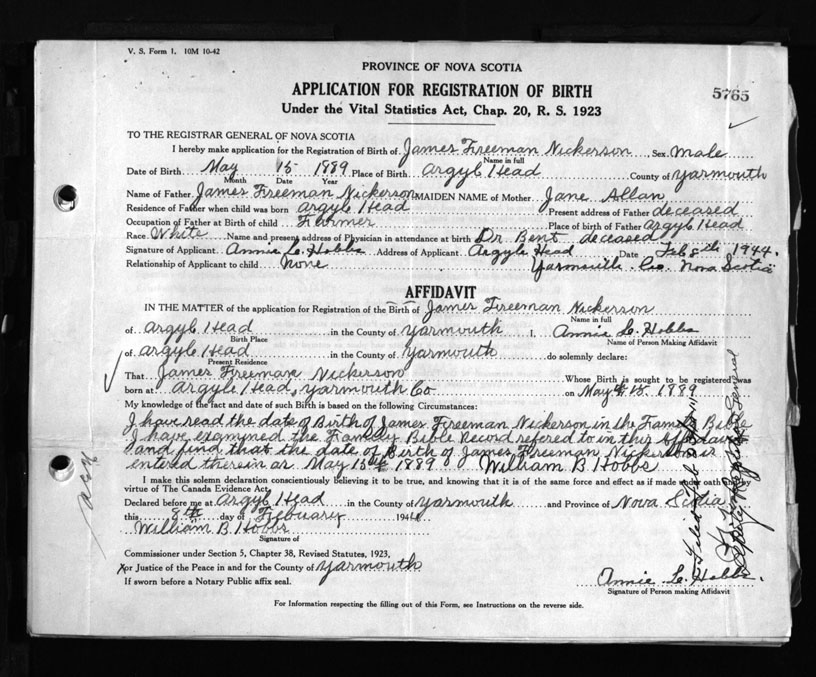 V. S. Form 1. 10M 10-42
PROVINCE OF NOVA SCOTIA
APPLICATION FOR REGISTRATION OF BIRTH
5765
Under the Vital Statistics Act, Chap. 20, R. S. 1923
TO THE REGISTRAR GENERAL OF NOVA SCOTIA
I hereby make application for the Registration of Birth of James Freeman Nickerson, Sex Male
Name in full
Date of Birth May 15 1889 Place of Birth Argyle Head County of Yarmouth
Month Date Year
Name of Father James Freeman Nickerson MAIDEN NAME of Mother Jane Allan
Residence of Father when child was born Argyle Head Present address of Father deceased
Occupation of Father at Birth of child Farmer Place of birth of Father Argyle Head
Race White Name and present address of Physician in attendance at birth Dr Bent deceased
Signature of Applicant Annie L. Hobbs Address of Applicant Argyle Head Date Feb 8th 1944.
Relationship of Applicant to child None Yarmouth Co. Nova Scotia
AFFIDAVIT
IN THE MATTER of the application for Registration of the Birth of James Freeman Nickerson
Name in full
of Argyle Head in the County of Yarmouth I, Annie L. Hobbs
Birth Place Name of Person Making Affidavit
of Argyle Head in the County of Yarmouth do solemnly declare:
Present Residence
That James Freeman Nickerson Whose Birth is sought to be registered was
born at Argyle Head, Yarmouth Co. on May 15 1889
My knowledge of the fact and date of such Birth is based on the following Circumstances:
I have read the date of Birth of James Freeman Nickerson in the Family Bible
I have examined the Family Bible Record refered to in this affidavit
and find that the date of Birth of James Freeman Nickerson is
entered therein as May 15th 1889 William B Hobbs
I make this solemn declaration conscientiously Believing it to be true, and knowing that it is of the same force and effect as if made under oath by
virtue of The Canada Evidence Act.
Declared before me at Argyle Head in the County of Yarmouth and Province of Nova Scotia
this 8th day of February 1944
William B. Hobbs
Signature of
Commissioner under Section 5, Chapter 38, Revised Statutes, 1923,
or Justice of the Peace in and for the County of Yarmouth
If sworn before a Notary Public affix seal.
Annie L. Hobbs.
Signature of Person making Affidavit
For Information respecting the filling out of this Form, see Instructions on the reverse side.
Filed Feb
Deputy Registrar General